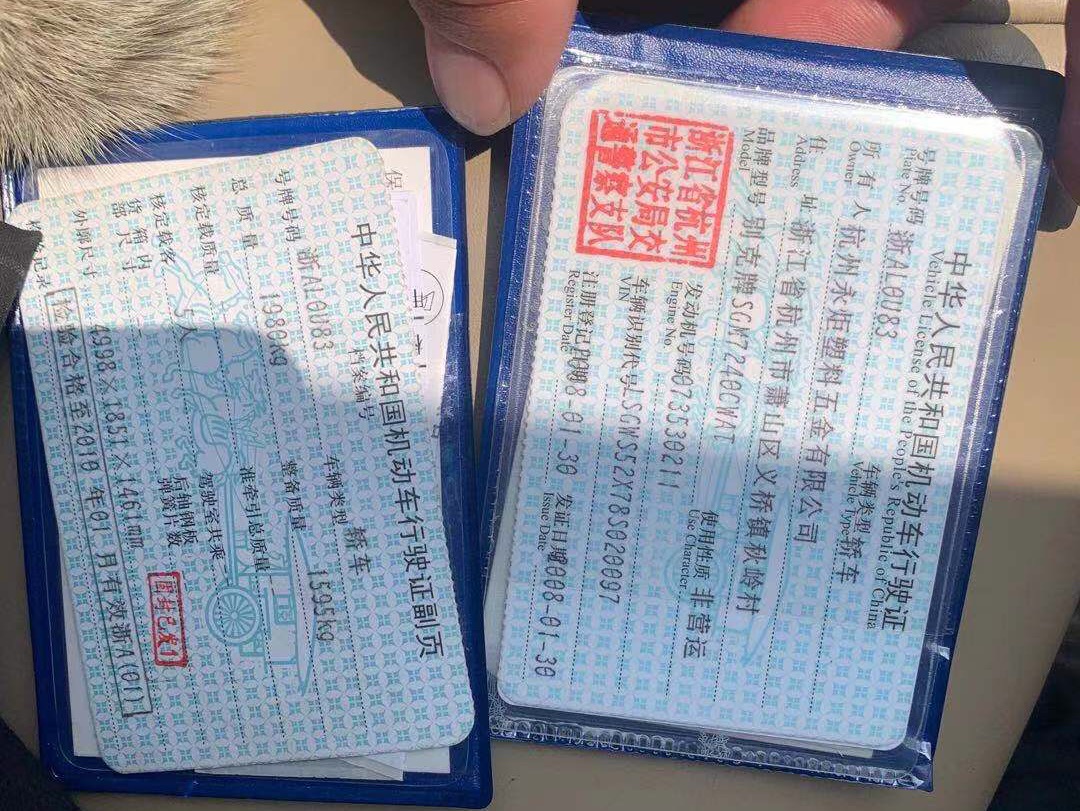 中华人民共和国机动车行驶证
Vehicle License of the People's Republic of China
号牌号码 浙AL0U83 车辆类型 轿车
Plate No. Vehicle Type
所有人 杭州永炬塑料五金有限公司
Owner
住址 浙江省杭州市萧山区义桥镇秋岭村
Address
品牌型号 别克牌SGM7240CWAT 使用性质 非营运
Model Use Character
浙江省杭州
市公安局交
通警察支队
发动机号码 073530211
Engine No.
车辆识别代号 LSGWS52X78S020007
VIN
注册登记日期 2008-01-30 发证日期 2008-01-30
Register Date Issue Date
中华人民共和国机动车行驶证副页
档案编号
号牌号码 浙AL0U83 车辆类型 轿车
总质量 1980kg 整备质量 1595kg
核定载质量 准牵引总质量
核定载客 5人 驾驶室共乘
货箱内部尺寸 后轴钢板弹簧片数
外廓尺寸 4998×1851×1461mm
检验合格至2010年01月有效浙A(01)
保